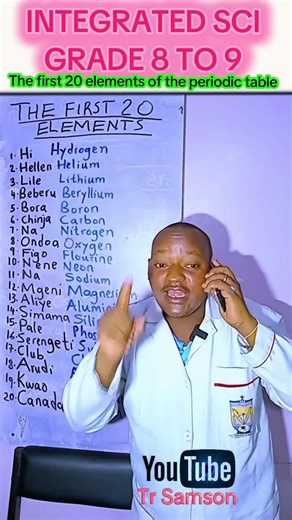 INTEGRATED SCI
GRADE 8 TO 9
The first 20 elements of the periodic table
THE FIRST 20
ELEMENTS
1. Hi Hydrogen
2. Hellen Helium
3. Lile Lithium
4. Beberu Beryllium
5. Bora Boron
6. Chinja Carbon
7. Na Nitrogen
8. Ondoa Oxygen
9. Figo Flourine
10. Nyene Neon
11. Na Sodium
12. Mgeni Magnesium
13. Aliye Alumin
14. Simama Sili
15. Pale Phos
16. Serengeti Su
17. Club
18. Arudi
19. Kwao
20. Canada
YouTube
Tr Samson